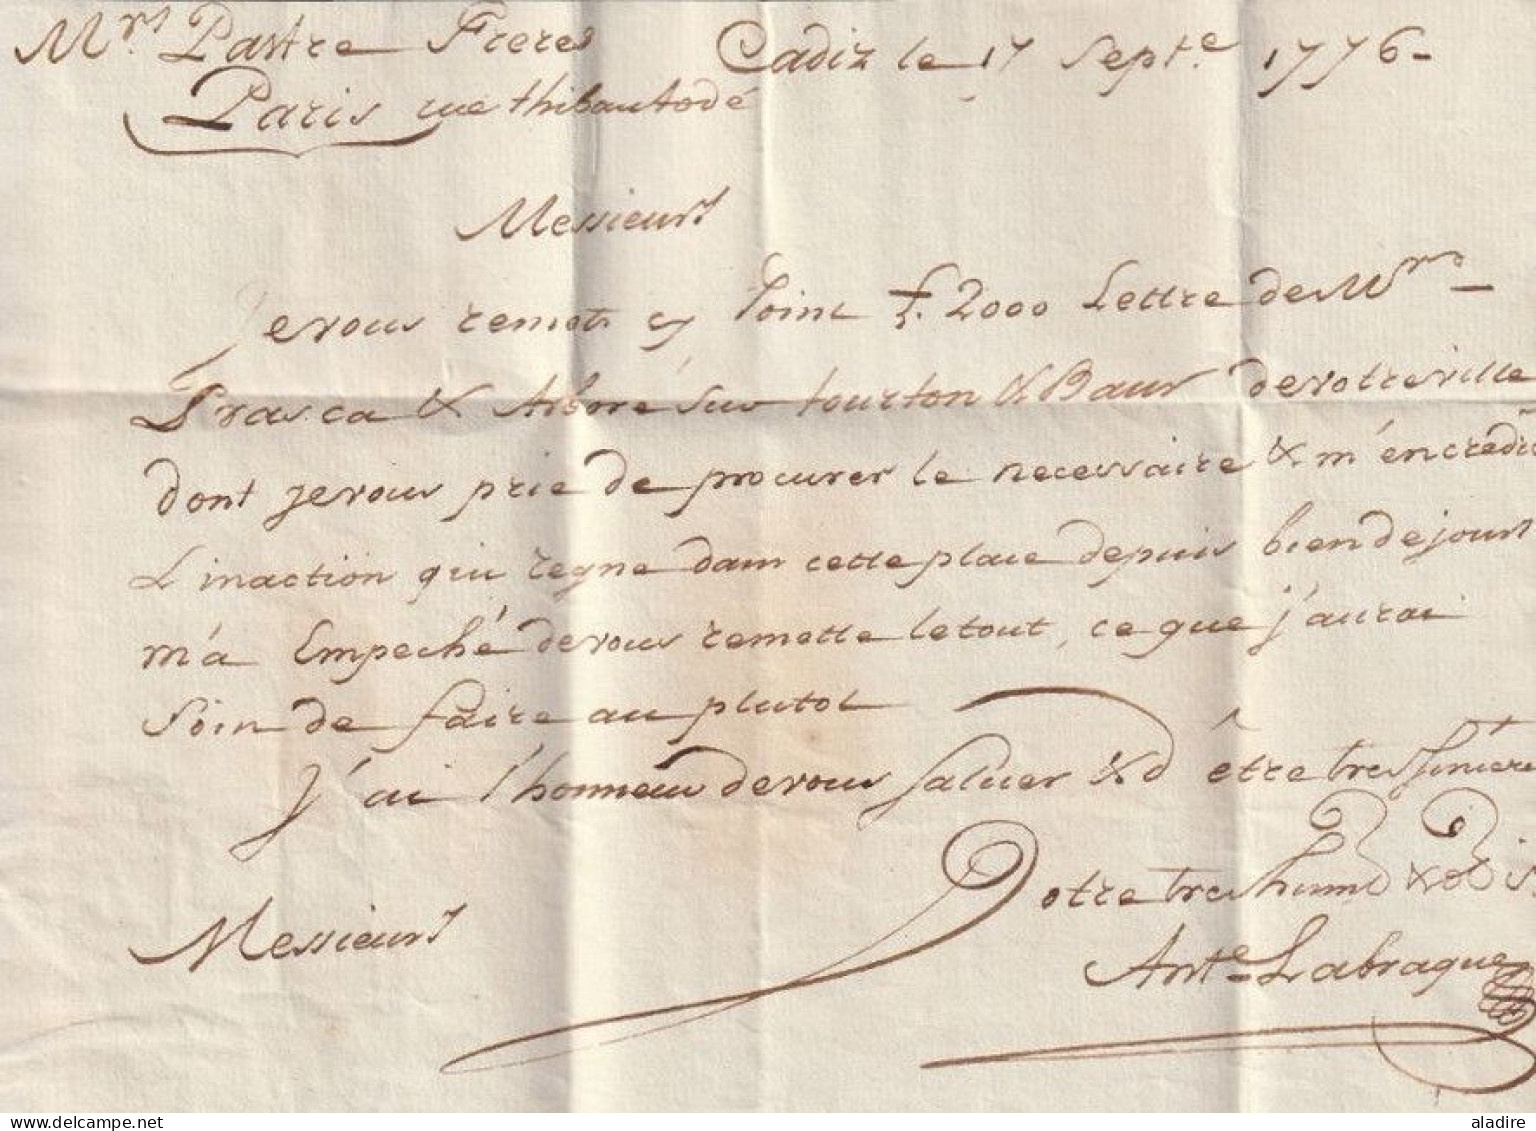 Mrs Pastre Freres Cadiz le 17 Septe 1776-
Paris rue thibautodé
Messieurs
Je vous remets cy Joint £. 2000 Lettre de Mrs
Prasca & Arboré sur tourton & Baur de votre ville
dont je vous prie de procurer le necessaire & m'en credit
L'inaction qui regne dans cette place depuis bien de jours
m'a Empeché de vous remettre le tout, ce que j'aurai
Soin de faire au plutot
J'ai l'honneur de vous saluer & d'être tres
Votre tres
Messieurs
Ante Labrague
aladire